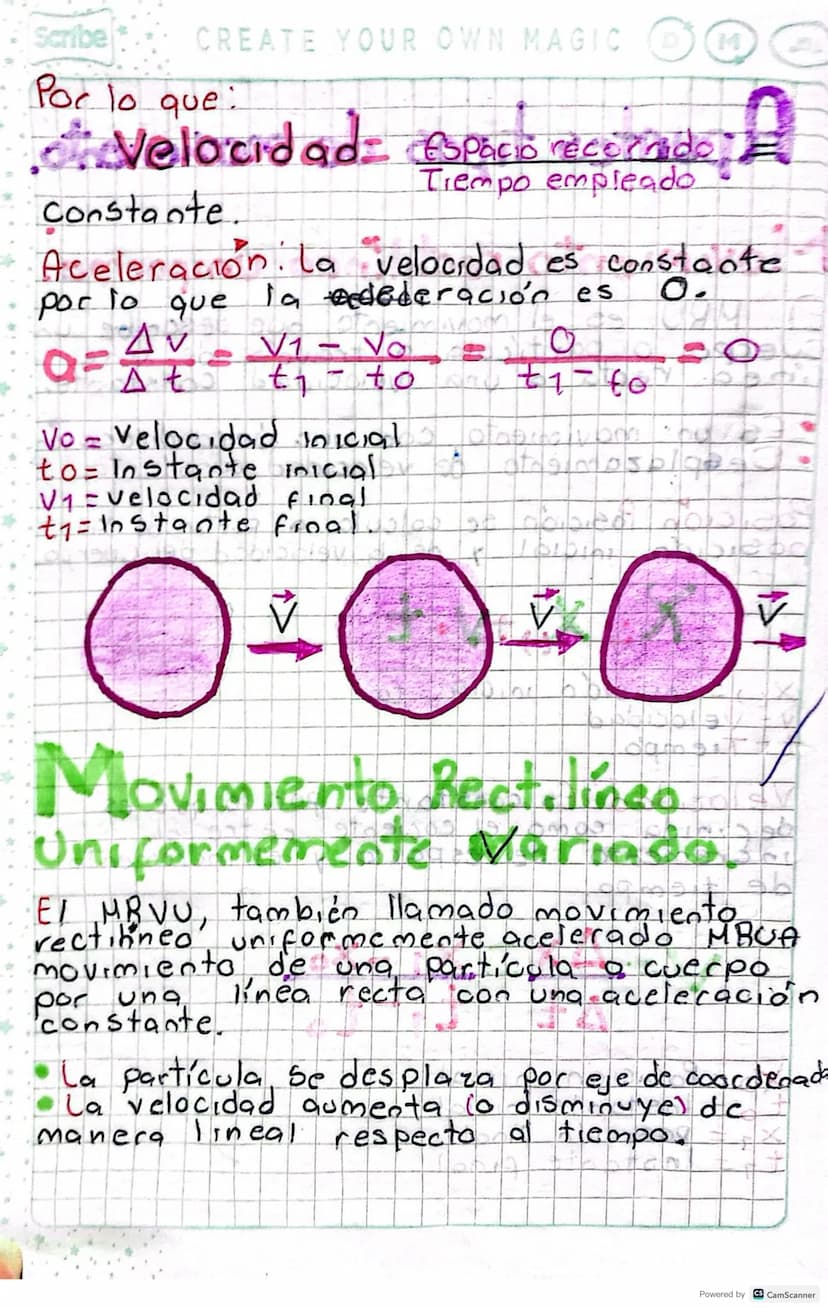 Scribe CREATE YOUR OWN MAGIC D M
Por lo que:
Velocidad = Espacio recorrido =
Tiempo empleado
constante.
Aceleración: La velocidad es constante
por lo que la edederación es 0.
a = Δv / Δt = V1 - Vo / t1 - to = 0 / t1 - to = 0
Vo = Velocidad inicial
to = Instante inicial
V1 = velocidad final
t1 = Instante final.
V V V
Movimiento Rectilíneo
Uniformemente Variado.
El MRVU, también llamado movimiento
rectilíneo uniformemente acelerado MRUA
movimiento de una partícula o cuerpo
por una línea recta con una aceleración
constante.
• La partícula se desplaza por eje de coordenada
• La velocidad aumenta (o disminuye) de
manera lineal respecto al tiempo.
Powered by CS CamScanner